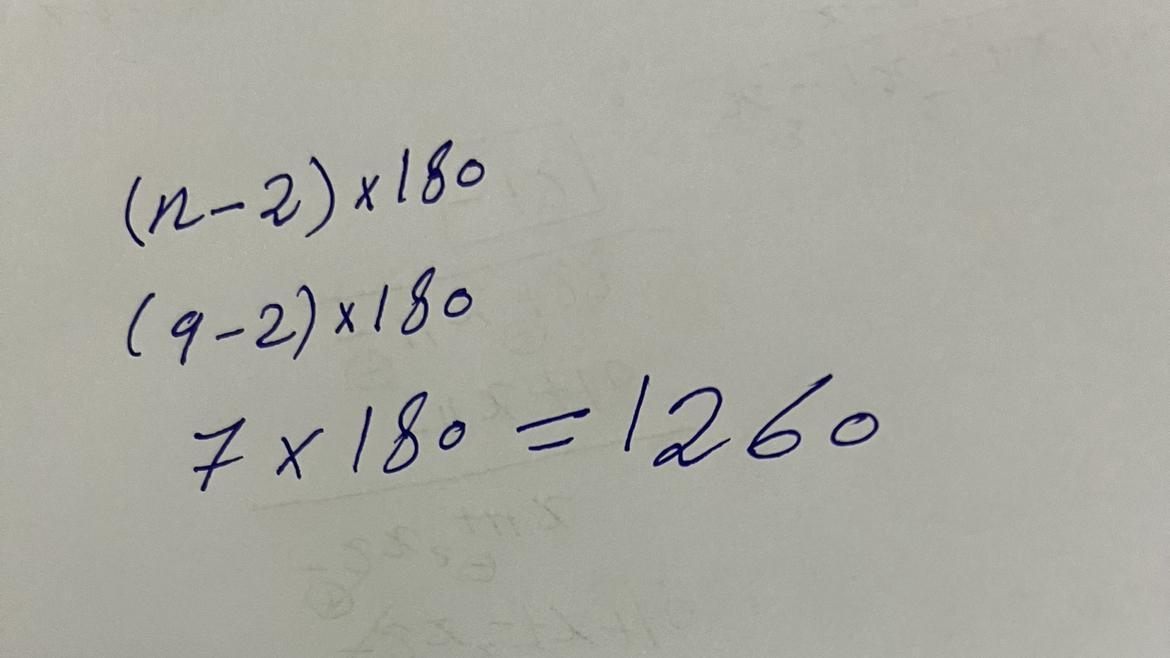 (n-2)×180
(9-2)×180
7×180=1260